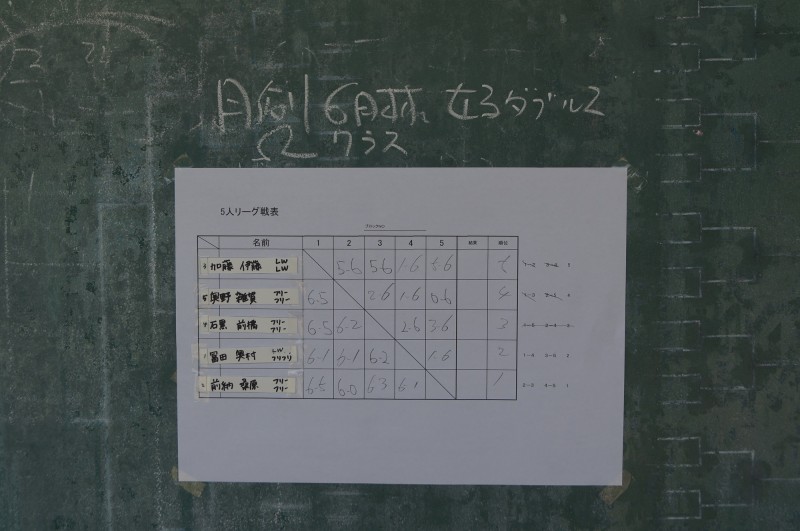 月例6月杯 女子ダブルス
クラス
5人リーグ戦表
名前 1 2 3 4 5 結果 順位
加藤 伊藤 LW LW 5-6 5-6 1-6 5-6 5
奥野 雑賀 フリー フリー 6-5 2-6 1-6 0-6 4
石黒 前橋 フリー フリー 6-5 6-2 2-6 3-6 3
冨田 奥村 LW フリフリ 6-1 6-1 6-2 1-6 2
前納 桑原 フリー フリー 6-5 6-0 6-3 6-1 1